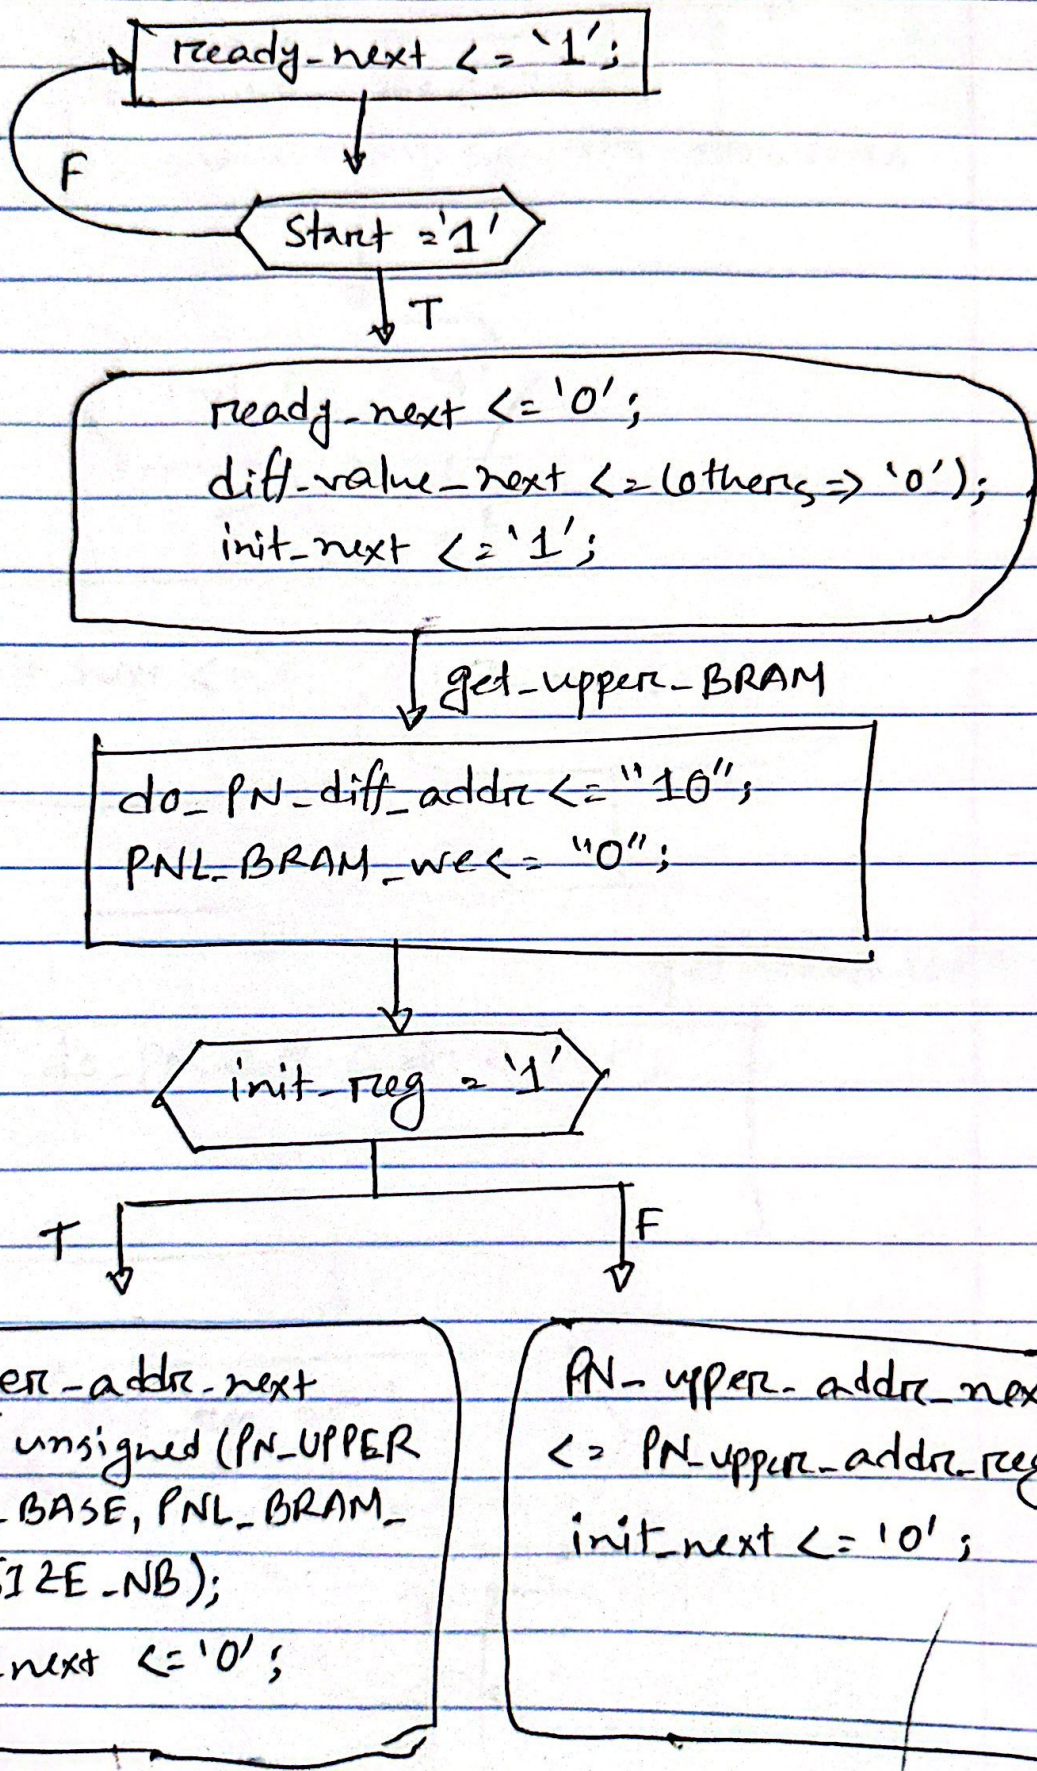 ready_next <= '1';
F
Start = '1'
T
ready_next <= '0';
diff_value_next <= (others => '0');
init_next <= '1';
get_upper_BRAM
do_PN_diff_addr <= "10";
PNL_BRAM_we <= "0";
init_reg = '1'
T
F
er_addr_next
unsigned (PN_UPPER
_BASE, PNL_BRAM_
SIZE_NB);
_next <= '0';
PN_upper_addr_nex
<= PN_upper_addr_reg
init_next <= '0';